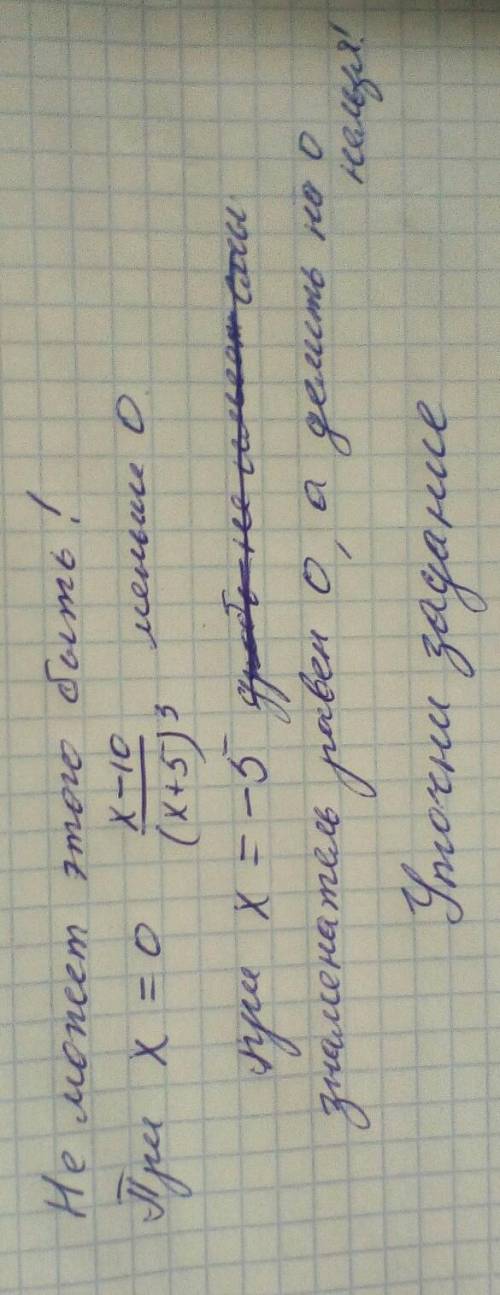 Не может этого быть!
При x = 0 x - 10 / (x + 5)³ меньше 0
при x = -5 дробь не имеет смы
знаменатель равен 0, а делить на 0
нельзя!
Уточни задание